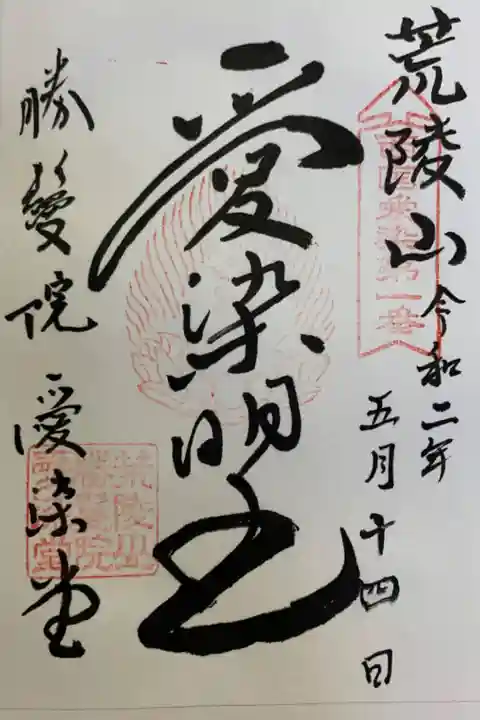 荒陵山
令和二年
五月十四日
愛染明王
勝鬘院 愛染堂
西国愛染第一番
荒陵山
勝鬘院
愛染堂